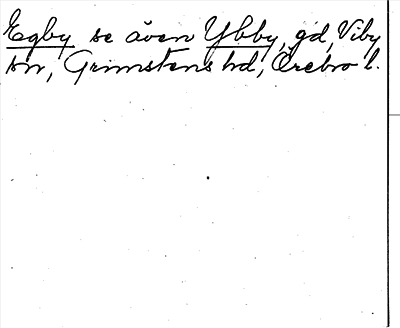 Egby se även Ybby, gd, Viby
sn, Grimstens hd, Örebro l.